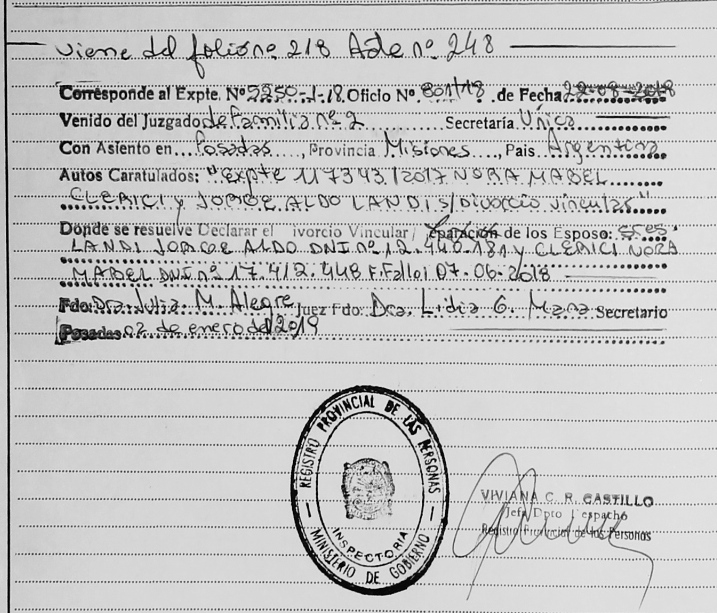 Viene del folio nº 218 Acta nº 248
Corresponde al Expte. Nº 5250-1-18. Oficio Nº .de Fecha 22-08-2018
Venido del Juzgado de Familia nº 2 Secretaría Única
Con Asiento en Posadas, Provincia Misiones, Pais Argentina
Autos Caratulados: "Expte 117343/2017 NORA MABEL
CLERICI y JORGE ALDO LANDI s/Divorcio vincular"
Donde se resuelve Declarar el ivorcio Vincular/ eparación de los Esposo: sres.
LANDI JORGE ALDO DNI nº 12.440.181 y CLERICI NORA
MABEL DNI nº 17.412.448 F. Fallo: 07-06-2018
Fdo: Dra Julia M. Alegre Juez Fdo: Dra. Lidia G. Secretario
Posadas 02 de enero del 2019
REGISTRO PROVINCIAL DE LAS PERSONAS
INSPECTORIA
MINISTERIO DE GOBIERNO
VIVIANA C. R. CASTILLO
Jefa Dpto Despacho
Registro Provincial de las Personas